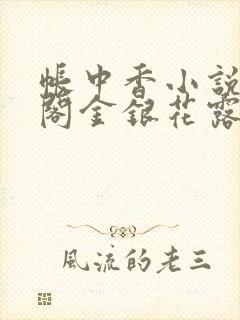 帳中香小說
閣金銀花露
風流的老三